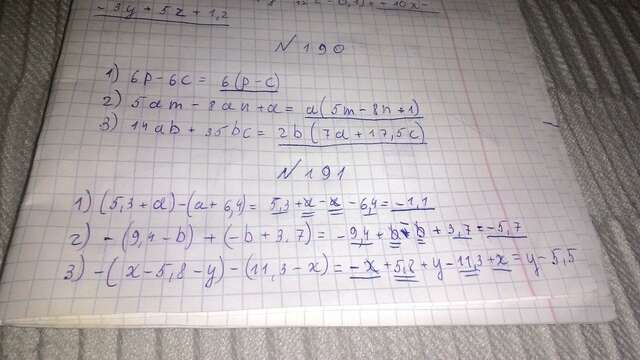 - 3y + 5z + 1,2
- 10x -
N 190
1) 6p - 6c = 6(p - c)
2) 5am - 8an + a = a(5m - 8n + 1)
3) 14ab + 35bc = 2b(7a + 17,5c)
N 191
1) (5,3 + a) - (a + 6,4) = 5,3 + a - a - 6,4 = -1,1
2) -(9,4 - b) + (-b + 3,7) = -9,4 + b - b + 3,7 = -5,7
3) -(x - 5,8 - y) - (11,3 - x) = -x + 5,8 + y - 11,3 + x = y - 5,5